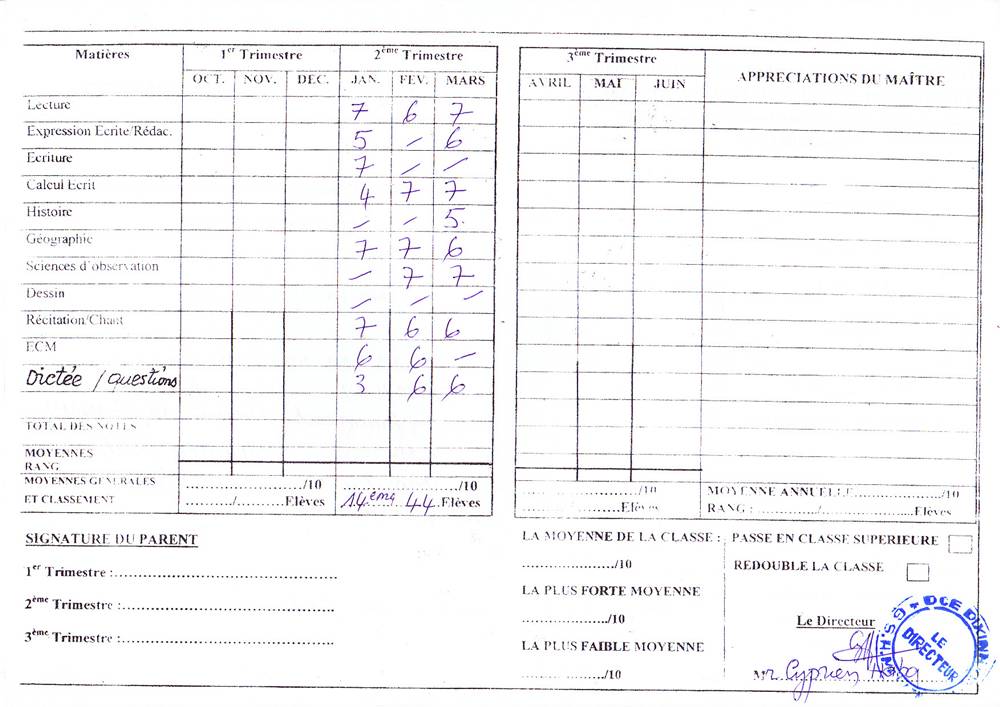 Matières 1er Trimestre 2ème Trimestre 3ème Trimestre APPRECIATIONS DU MAÎTRE
OCT. NOV. DEC. JAN. FEV. MARS AVRIL MAI JUIN
Lecture 7 6 7
Expression Ecrite/Rédac. 5 – 6
Ecriture 7 – –
Calcul Ecrit 4 7 7
Histoire – – 5
Géographie 7 7 6
Sciences d'observation – 7 7
Dessin – – –
Récitation/Chant 7 6 6
ECM 6 6 –
Dictée / questions 3 6 6
TOTAL DES NOTES
MOYENNES
RANG
MOYENNES GENERALES ............/10 ............/10 ............/10 MOYENNE ANNUELLE............/10
ET CLASSEMENT ........./.........Elèves 14ème/ 44 Elèves .........Elèves RANG :........./.........Elèves
SIGNATURE DU PARENT
1er Trimestre :............
2ème Trimestre :............
3ème Trimestre :............
LA MOYENNE DE LA CLASSE :
............/10
LA PLUS FORTE MOYENNE
............/10
LA PLUS FAIBLE MOYENNE
............/10
PASSE EN CLASSE SUPERIEURE
REDOUBLE LA CLASSE
Le Directeur
Mr Cyprien
DCE DIXINN
LE DIRECTEUR